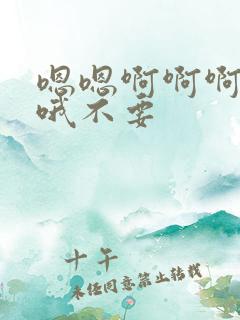 嗯嗯啊啊啊
哦不要
十午
未经同意禁止转载